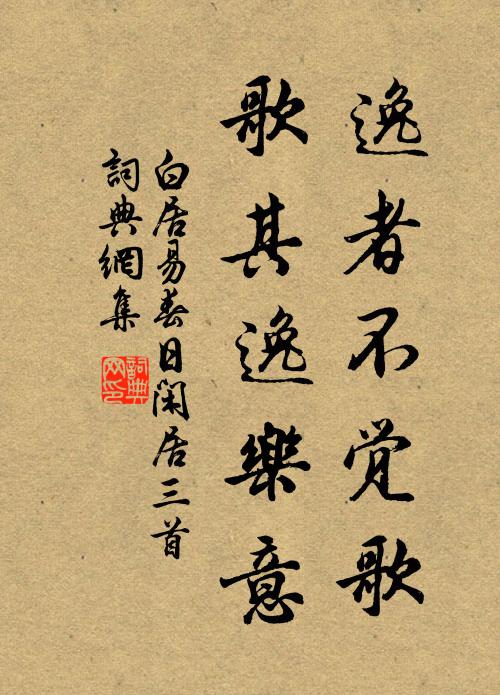 逸者不觉歌
歌其逸樂意
白居易春日閑居三首
詞典網集
詞典网印